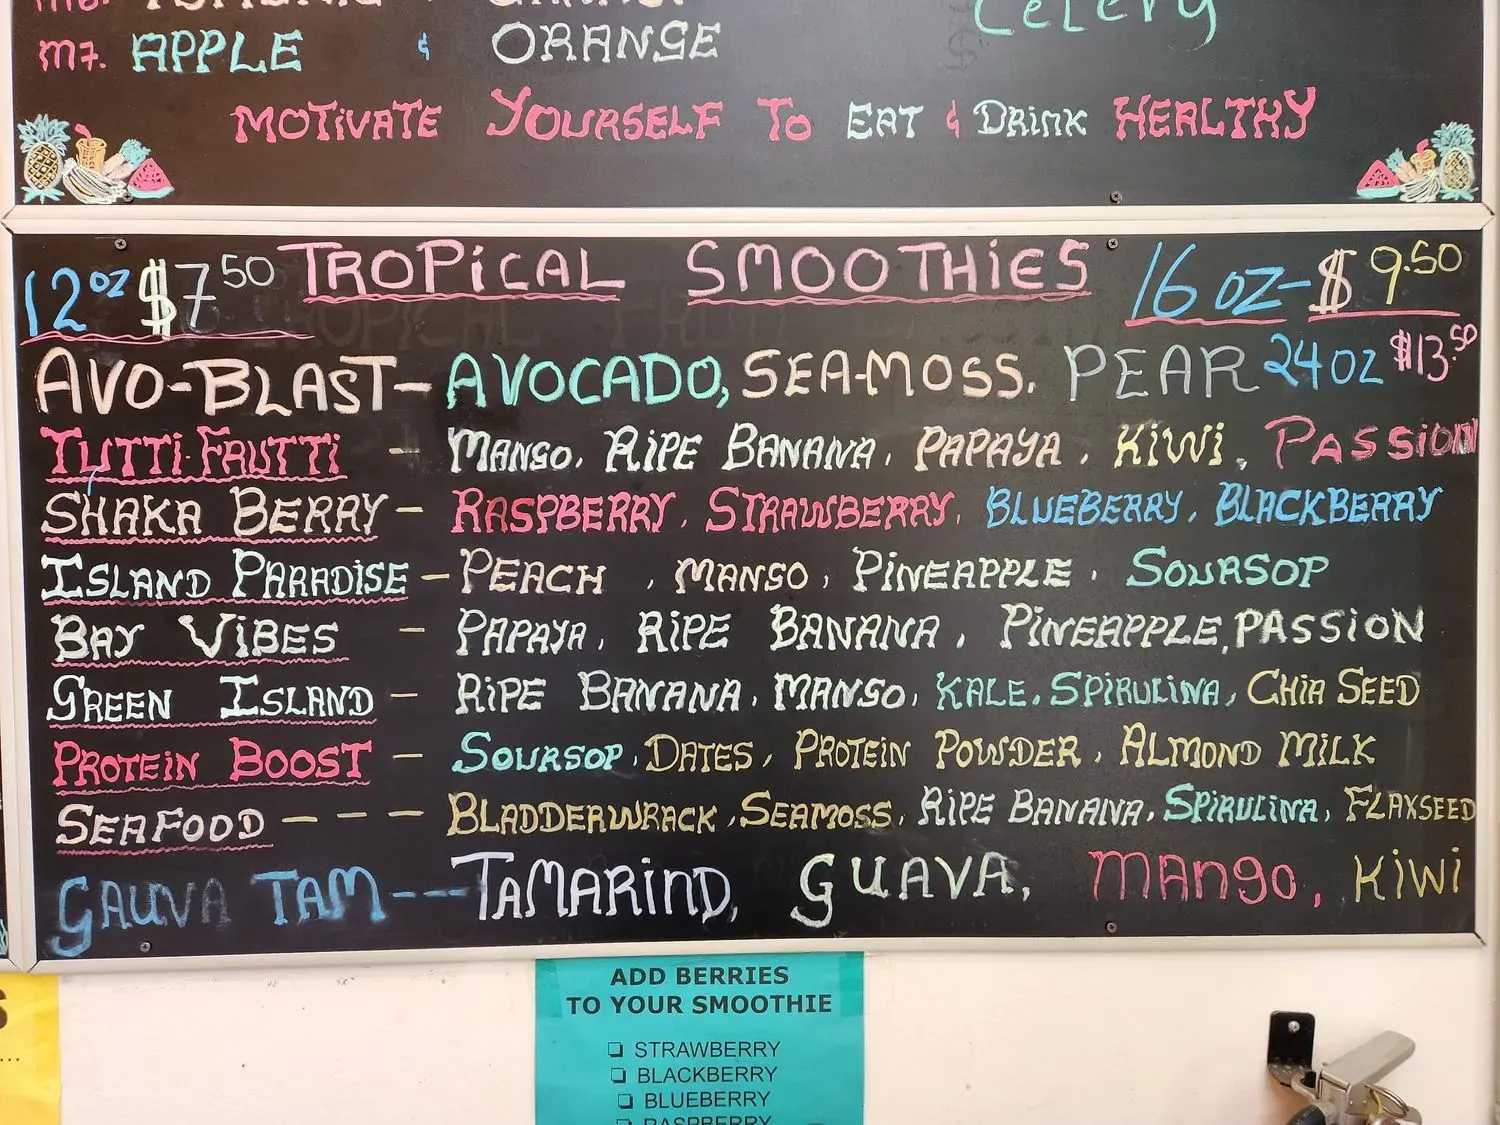 M7. APPLE & ORANGE
Celery
MOTIVATE YOURSELF TO EAT & DRINK HEALTHY
12 OZ $7.50 TROPICAL SMOOTHIES 16 OZ - $9.50
24 OZ $13.50
AVO-BLAST - AVOCADO, SEA-MOSS. PEAR
TUTTI-FRUTTI - MANGO, RIPE BANANA, PAPAYA, KIWI, PASSION
SHAKA BERRY - RASPBERRY, STRAWBERRY, BLUEBERRY, BLACKBERRY
ISLAND PARADISE - PEACH, MANGO, PINEAPPLE, SOURSOP
BAY VIBES - PAPAYA, RIPE BANANA, PINEAPPLE, PASSION
GREEN ISLAND - RIPE BANANA, MANGO, KALE, SPIRULINA, CHIA SEED
PROTEIN BOOST - SOURSOP, DATES, PROTEIN POWDER, ALMOND MILK
SEAFOOD - - - BLADDERWRACK, SEAMOSS, RIPE BANANA, SPIRULINA, FLAXSEED
GAUVA TAM --- TAMARIND, GUAVA, MANGO, KIWI
ADD BERRIES
TO YOUR SMOOTHIE
❏ STRAWBERRY
❏ BLACKBERRY
❏ BLUEBERRY
❏ RASPBERRY